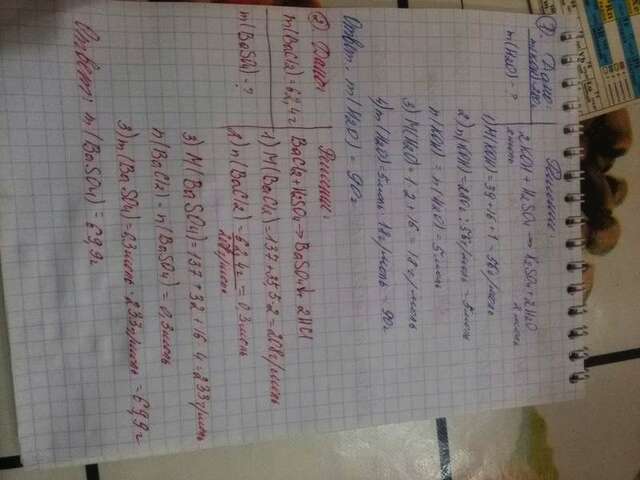 1. Дано:
m(KOH)=280г
m(H2O) - ?
Решение:
2KOH + H2SO4 → K2SO4 + 2H2O
2 моль 2 моль
1) M(KOH) = 39+16+1 = 56г/моль
2) n(KOH) = 280 : 56г/моль = 5моль
n(KOH) = n(H2O) = 5 моль
3) M(H2O) = 1·2+16 = 18г/моль
4) m(H2O) = 5моль · 18г/моль = 90г
Ответ: m(H2O) = 90г
2. Дано:
m(BaCl2) = 62,4г
m(BaSO4) - ?
Решение:
BaCl2 + H2SO4 → BaSO4↓ + 2HCl
1) M(BaCl2) = 137+35,5·2 = 208г/моль
2) n(BaCl2) = 62,4г / 208г/моль = 0,3моль
3) M(BaSO4) = 137+32+16·4 = 233г/моль
n(BaCl2) = n(BaSO4) = 0,3моль
3) m(BaSO4) = 0,3моль · 233г/моль = 69,9г
Ответ: m(BaSO4) = 69,9г